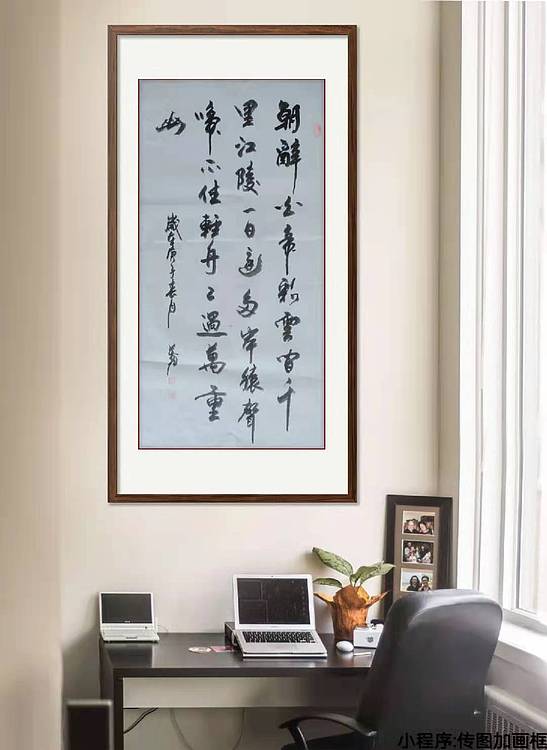 朝辭白帝彩雲間千
里江陵一日還两岸猿聲
啼不住輕舟已過萬重
山
歲在庚子春月
小程序:传图加画框